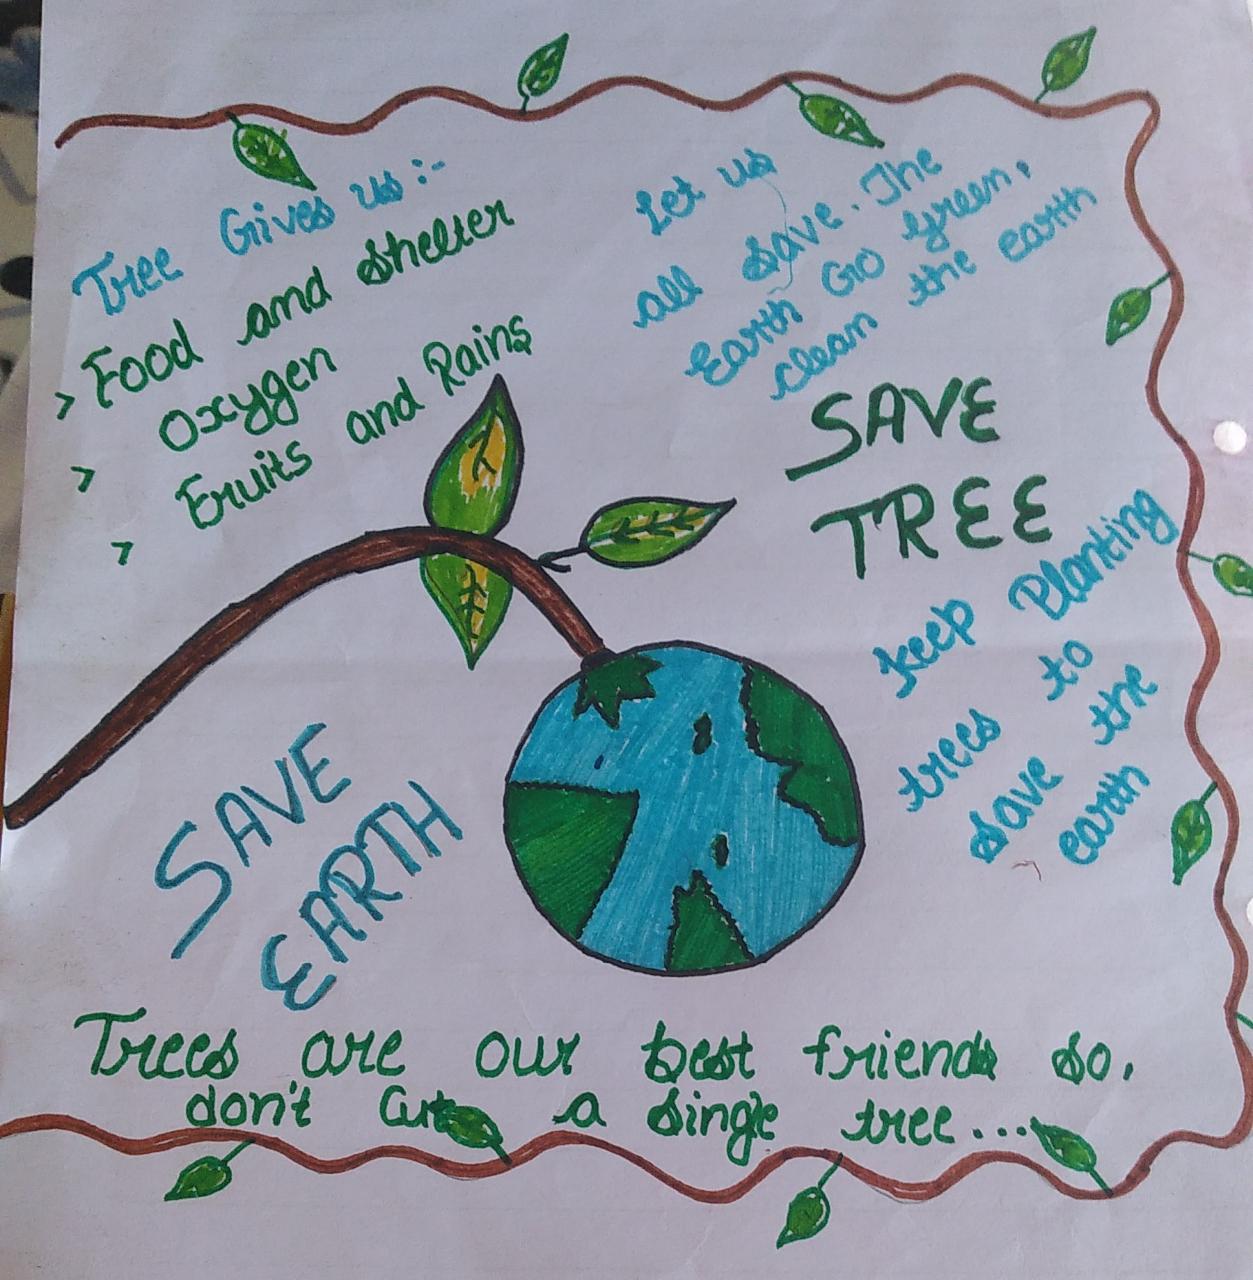 Tree Gives us :-
> Food and shelter
> Oxygen
> Fruits and Rains
Let us
all save. The
Earth Go green,
clean the earth
SAVE
TREE
keep Planting
trees to
save the
earth
SAVE
EARTH
Trees are our best friends so,
don't cut a single tree...